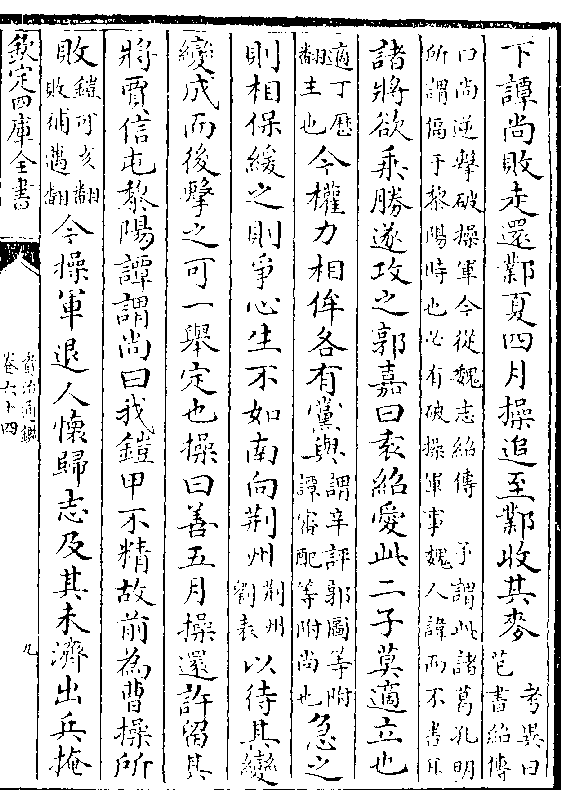 下譚尚敗走還鄴夏四月操追至鄴收其麥考異曰范書紹傳
曰尚逆擊破操軍今從魏志紹傳 予謂此諸葛孔明
所謂偪于黎陽時也必有破操軍事魏人諱而不書耳
諸將欲乘勝遂攻之郭嘉曰袁紹愛此二子莫適立也
適丁歷翻主也今權力相侔各有黨與謂辛評郭圖等附譚審配等附尚也急之
則相保緩之則爭心生不如南向荆州荆州劉表以待其變
變成而後擊之可一舉定也操曰善五月操還許留其
將賈信屯黎陽譚謂尚曰我鎧甲不精故前為曹操所
敗鎧可亥翻敗補邁翻今操軍退人懷歸志及其未濟出兵掩
欽定四庫全書
資治通鑑
卷六十四
九